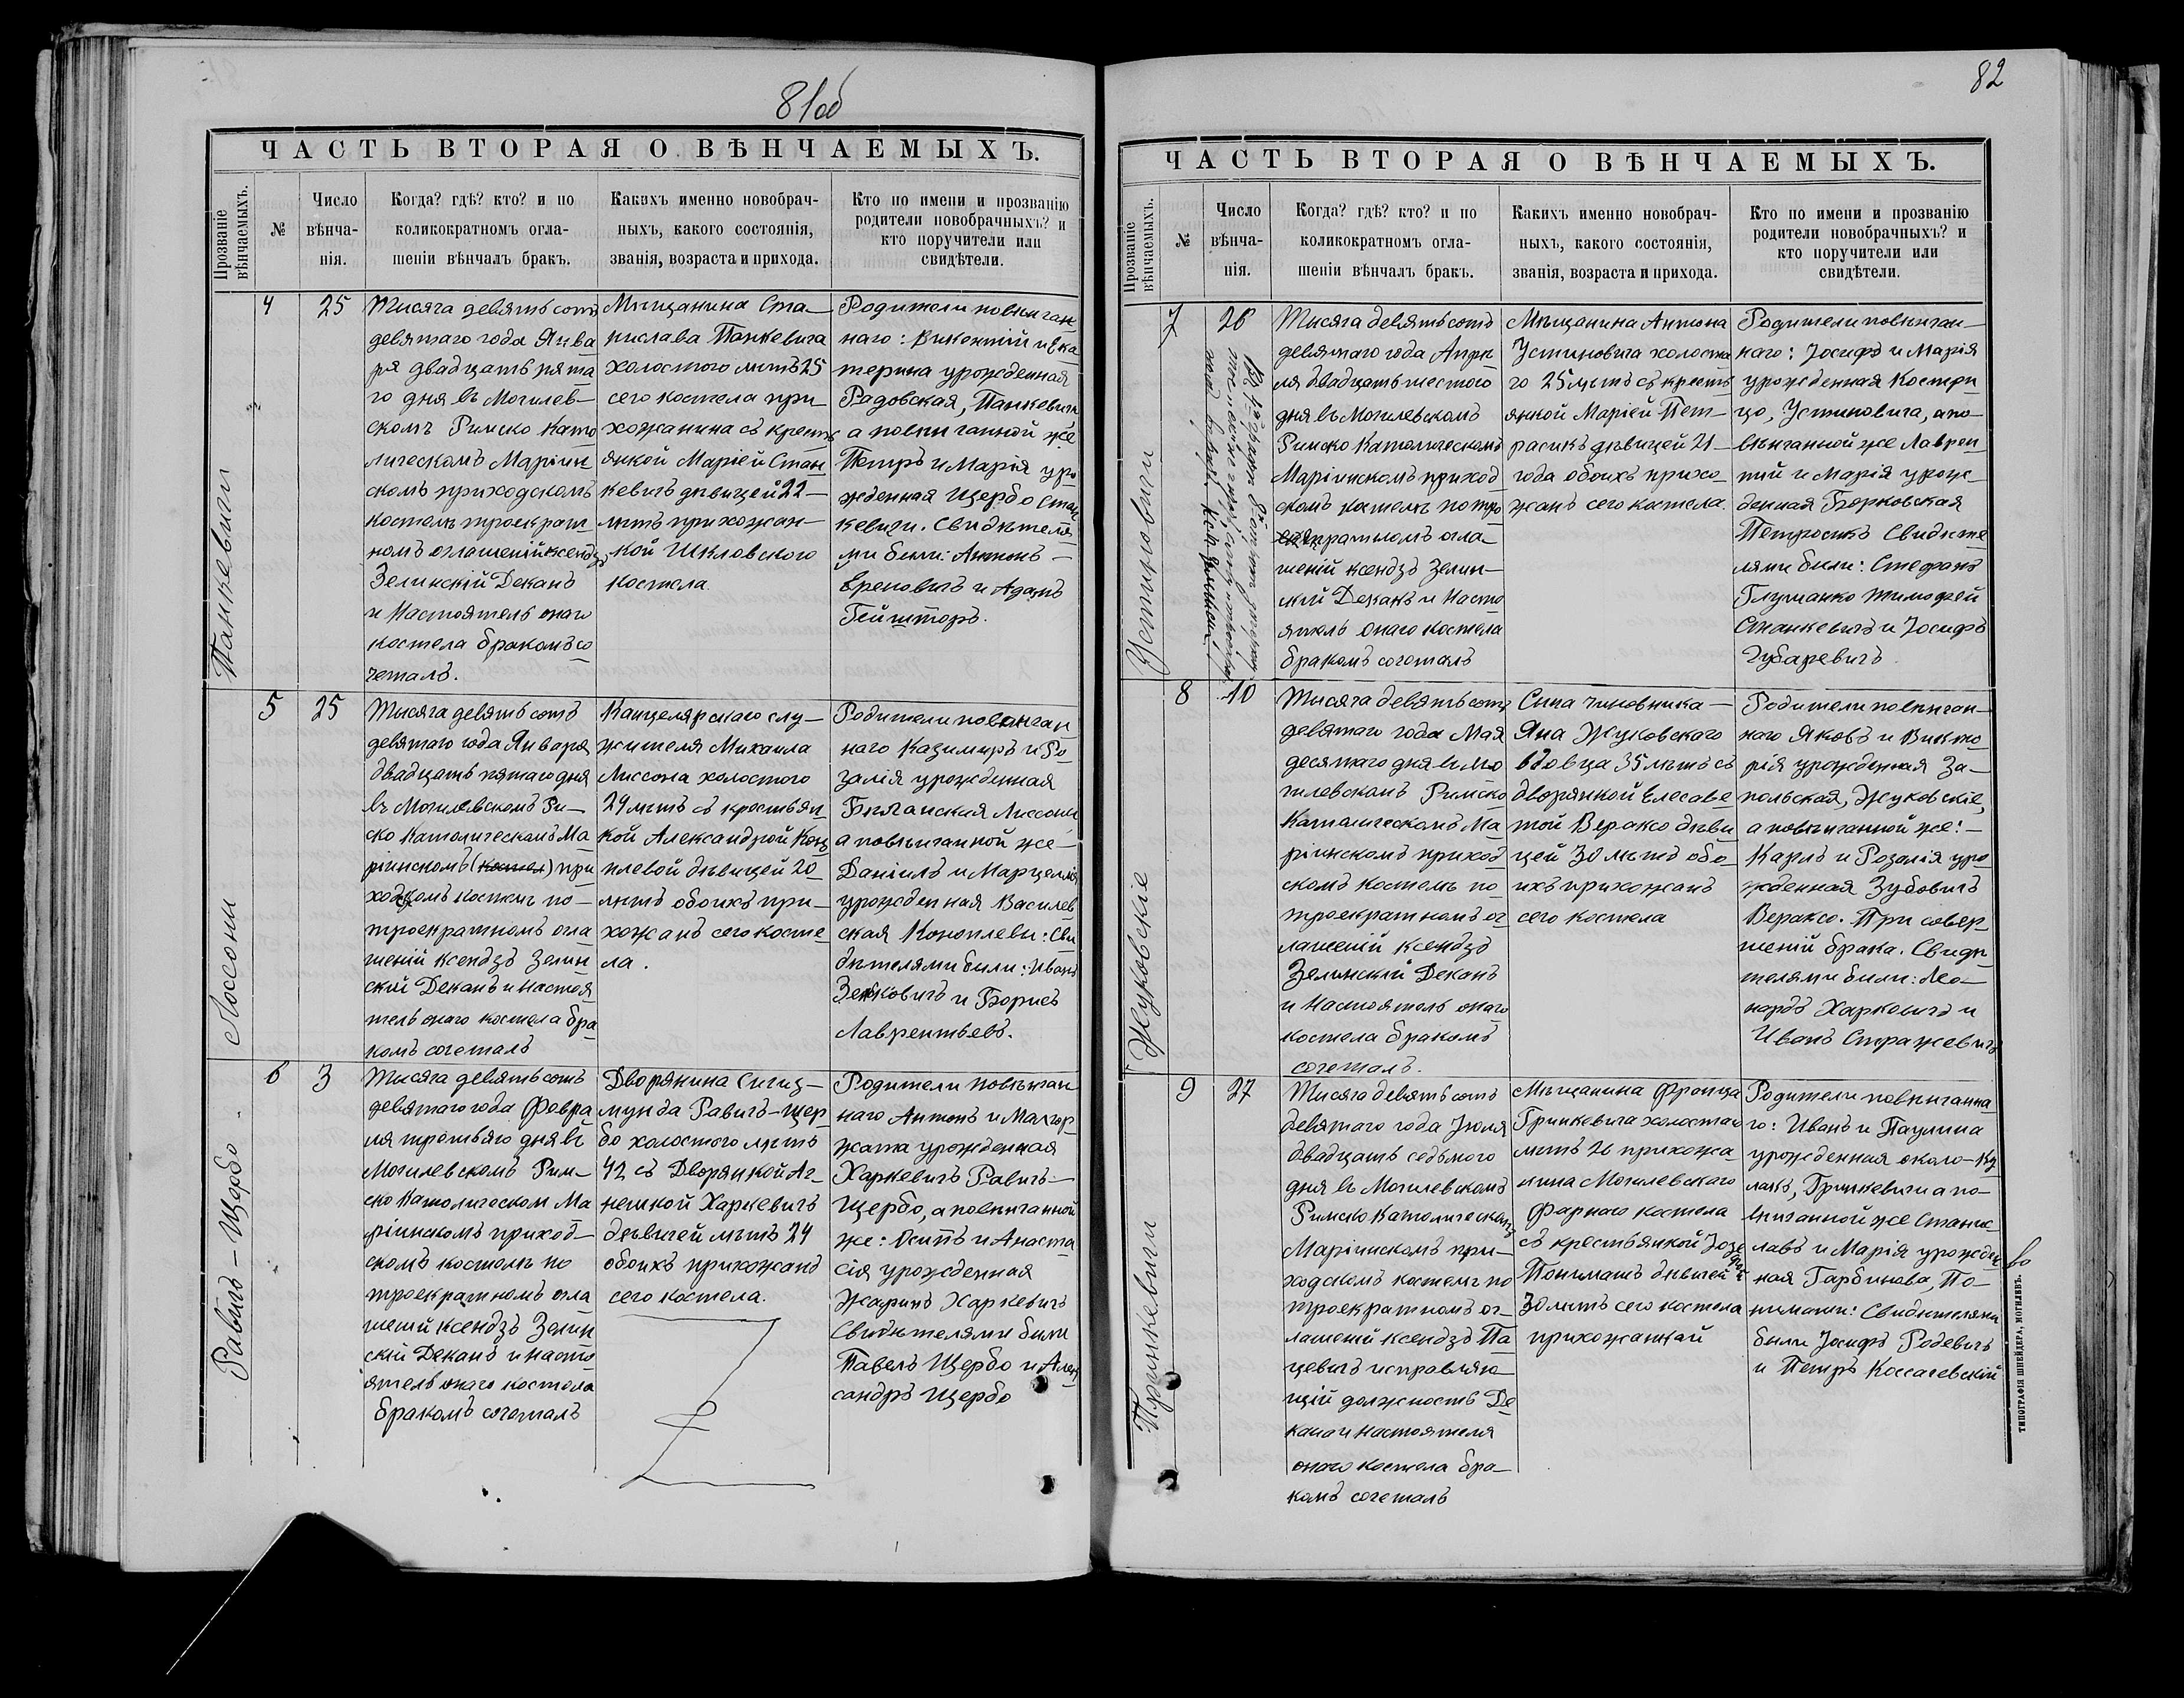 81об
ЧАСТЬ ВТОРАЯ О ВѢНЧАЕМЫХЪ.
Прозваніе вѣнчаемыхъ.
№
Число
вѣнча-
нія.
Когда? гдѣ? кто? и по
коликократномъ огла-
шеніи вѣнчалъ бракъ.
Какихъ именно новобрач-
ныхъ, какого состоянія,
званія, возраста и прихода.
Кто по имени и прозванію
родители новобрачныхъ? и
кто поручители или
свидѣтели.
Панкевичи
4
25
Тысяча девятьсотъ
девятаго года Янва
ря двадцать пята
го дня въ Могилев-
скомъ Римско Като
лическомъ Маріин
скомъ приходскомъ
костелѣ троекрат
номъ оглашеній ксендзъ
Зелинскій Деканъ
и Настоятель онаго
костела бракомъ со
четалъ.
Мѣщанина Ста-
нислава Панкевича
холостого лѣтъ 25
сего костела при-
хожанина съ кресть
янкой Маріей Стан
кевичъ дѣвицей 22-
лѣтъ прихожан-
кой Шкловскаго
костела
Родители повѣнчан
наго: Викентій и Ека
терина урожденная
Радовская, Панкевичи
а повѣнчанной же
Петръ и Марія уро
жденная Щербо Стан
кевичи. Свидѣтеля
ми были: Антонъ-
Вреновичъ и Адамъ
Гейшторъ.
Лоссони
5
25
Тысяча девятьсотъ
девятаго года Января
двадцать пятаго дня
въ Могилевскомъ Ри-
ско Католическомъ Ма
ріинскомъ (костел) при
ходскомъ костелѣ по-
троекратномъ огла
шеній ксендзъ Зелин
скій Деканъ и Настоя
тель онаго костела бра
комъ сочеталъ
Канцелярскаго слу-
жителя Михаила
Лиссона холостого
24 лѣтъ съ крестьян-
кой Александрой Коно
плевой дѣвицей 20-
лѣтъ обоихъ при-
хожанъ сего косте
ла.
Родители повѣнчан
наго Казимиръ и Ро
залія урожденная
Лиссони
а повѣнчанной же-
Даніилъ и Марцелла
урожденная Василев
ская Коноплевы: Сви
дѣтелями были: Иванъ
Зенковичъ и Борисъ
Лаврентьевъ.
Равичъ-Щербо
6
3
Тысяча девятьсотъ
девятаго года Февра
ля третьяго дня въ
Могилевскомъ Рим-
ско Католическом Ма
ріинскомъ приход-
скомъ костелѣ по
троекратномъ огла
шеній ксендзъ Зелин
скій Деканъ и Насто
ятель онаго костела
бракомъ сочеталъ
Дворянина Сигиз-
мунда Равичъ-Щер
бо холостого лѣтъ
42 съ Дворянкой Аг-
нешкой Харкевичъ
дѣвицей лѣтъ 24
обоихъ прихожанъ
сего костела.
Родители повѣнчан
наго Антонъ и Малгор
жата урожденная
Харкевичъ Равичъ-
Щербо, а повѣнчанной
же: Осипъ и Анаста
сія урожденная
Жаринъ Харкевичъ
Свидѣтелями были
Павелъ Щербо и Алек
сандръ Щербо
82
ЧАСТЬ ВТОРАЯ О ВѢНЧАЕМЫХЪ.
Прозваніе вѣнчаемыхъ.
№
Число
вѣнча-
нія.
Когда? гдѣ? кто? и по
коликократномъ огла-
шеніи вѣнчалъ бракъ.
Какихъ именно новобрач-
ныхъ, какого состоянія,
званія, возраста и прихода.
Кто по имени и прозванію
родители новобрачныхъ? и
кто поручители или
свидѣтели.
Устиновичи
7
26
Тысяча девятьсотъ
девятаго года Апрѣ
ля двадцать шестого
дня въ Могилевскомъ
Римско Католическомъ
Маріинскомъ приход
скомъ костелѣ по тро
екратномъ огла-
шеній ксендзъ Зелин-
скій Деканъ и Насто
ятель онаго костела
бракомъ сочеталъ
Мѣщанина Антона
Устиновича холоста
го 25 лѣтъ съ кресть
янкой Маріей Пет-
расикъ дѣвицей 21-
года обоихъ прихо-
жанъ сего костела.
Родители повѣнчан-
наго: Іосифъ и Марія
урожденная Костри
цо, Устиновича, апо-
вѣнчанной же Лаврен
тій и Марія урож-
денная Борковская
Петросикъ Свидѣте
лями были: Стефанъ
Глушанко Тимофей
Станкевичъ и Іосифъ
Губаревичъ.
Жуковскіе
8
10
Тысяча девятьсотъ
девятаго года Мая
десятаго дня въ Мо
гилевскомъ Римско
Католическомъ Ма
ріинскомъ приход
скомъ костелѣ по
троекратномъ ог
лашеній ксендзъ
Зелинскій Деканъ
и Настоятель онаго
костела бракомъ
сочеталъ.
Сына чиновника-
Яна Жуковскаго
вдовца 35 лѣтъ съ
дворянкой Елесаве
той Вераксо дѣви
цей 30 лѣтъ обо-
ихъ прихожанъ
сего костела
Родители повѣнчан-
наго Яковъ и Викто
рія урожденная За-
польская, Жуковскіе,
а повѣнчанной же:-
Карлъ и Розалія уро
жденная Зубовичъ
Вераксо. При совер
шеній брака. Свидѣ
телями были: Лео-
нардъ Харкевичъ и
Иванъ Стражевичъ
Гринкевичи
9
27
Тысяча девятьсотъ
девятаго года Іюля
двадцать седьмого
дня въ Могилевскомъ
Римско Католическомъ
Маріинскомъ при-
ходскомъ костелѣ по
троекратномъ ог-
лашеній ксендзъ Па
цевичъ исправляю
щій должность Де
кана и настоятеля
онаго костела бра-
комъ сочеталъ
Мѣщанина Франца
Гринкевича холостаго
лѣтъ 26 прихожа-
нина Могилевскаго
Фарнаго костела
съ крестьянкой Юзе
фой
Пониматъ дѣвицей
30 лѣтъ сего костела
прихожанкой
Родители повѣнчанна
го: Иванъ и Паулина
урожденная около-Ку
лакъ, Гринкевичи а по-
вѣнчанной же Станис
лавъ и Марія урожден
ная Гарбинова, По-
ниматы: Свидѣтелями
были Іосифъ Родевичъ
и Петръ Коссачевскій
ТИПОГРАФІЯ ШНЕЙДЕРА, МОГИЛЕВЪ.